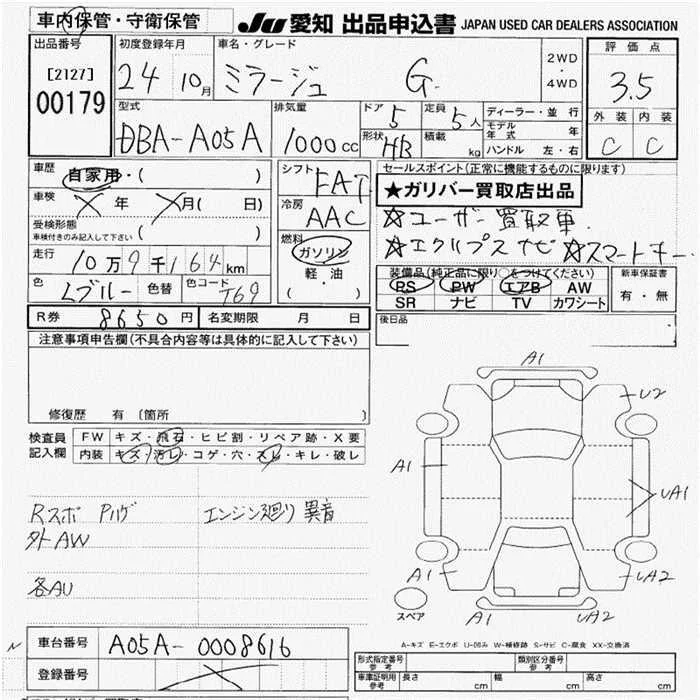 車内保管・守衛保管
JU 愛知 出品申込書 JAPAN USED CAR DEALERS ASSOCIATION
出品番号
[2127]
00179
初度登録年月
24 10月
車名・グレード
ミラージュ G
2WD
・
4WD
評価点
3.5
外装 内装
C C
型式
DBA-A05A
排気量
1000cc
ドア 5
定員 5人
形状 HB
積載 kg
ディーラー・並行
モデル年式 年
ハンドル 左・右
車歴 自家用・( )
車検 X年 X月( 日)
受検形態
車検付きのみ記入して下さい( )
走行 10万9千164km
色 Lブルー 色替 色コード T69
シフト FAT
冷房 AAC
燃料
ガソリン
軽・油
( ・ )
セールスポイント(正常に機能するものに限ります)
★ガリバー買取店出品
☆ユーザー買取車.
☆エクリプスナビ ☆スマートキー.
装備品(純正品に限り○をつけてください)
PS PW エアB AW
SR ナビ TV カワシート
新車保証書
有・無
R券 8650円 名変期限 月 日
後日品
注意事項申告欄(不具合内容等は具体的に記入して下さい)
修復歴 有〔箇所 〕
検査員記入欄
FW キズ・飛石・ヒビ割・リペア跡・X要
内装 キズ・汚レ・コゲ・穴・スレ・キレ・破レ
Rスポ Pハゲ エンジン廻り異音
外AW
各AU
A1
U2
A1
UA1
A1
UA2
A1
UA2
スペア
A-キズ E-エクボ U-凹み W-補修跡 S-サビ C-腐食 XX-交換済
N
車台番号 A05A-0008616
登録番号
形式指定番号 参考
類別区分番号 参考
車庫証明用 参考 長さ cm 幅 cm 高さ cm